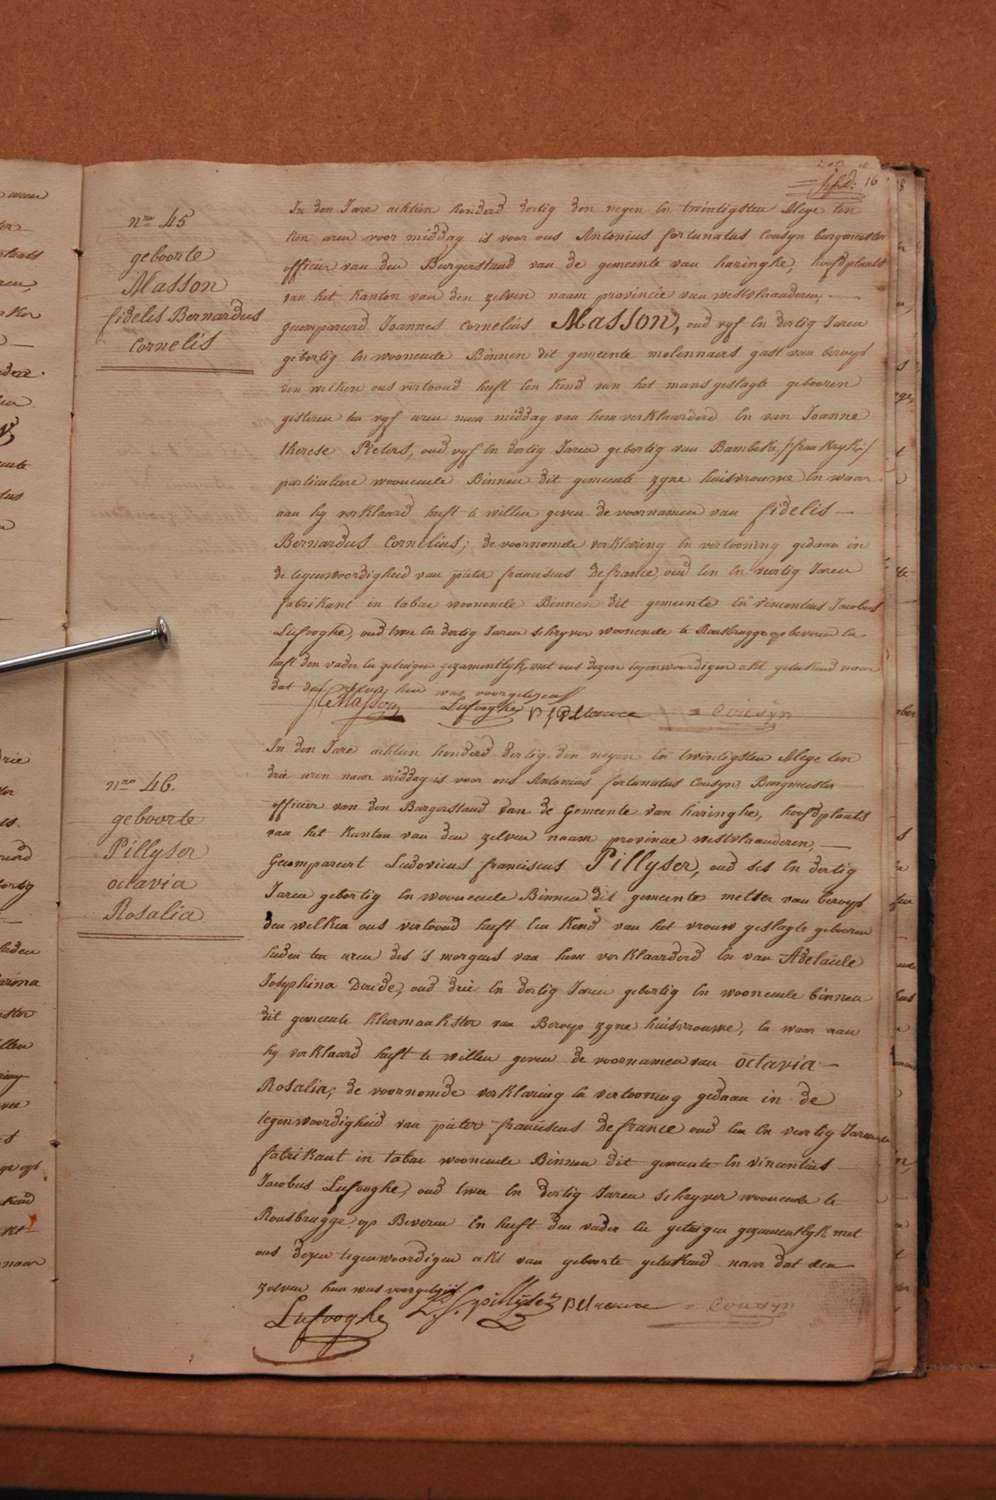 16
nro 45
geboorte
Masson
fidelis Bernardus
Cornelis
In den Jare achtien honderd dertig den negen en twintigsten Meye ten
tien uren voor middag is voor ons Antonius fortunatus Cousyn burgmeester
officier van den Burgerstand van de gemeente van haringhe, hoofdplaats
van het kanton van den zelven naam provincie van westvlaanderen,
gecompareerd Joannes Cornelius Masson, oud vyf en dertig Jaren
gebortig en woonende Binnen dit gemeente molennaers gast van beroep
den welken ons vertoond heeft een kind van het mans geslagte gebooren
gisteren ten vyf uren naer middag van hem verklaarderd en van Joanne
therese Pieters, oud vyf en dertig Jaren gebortig van Bambeke /:frankryk:/
particuliere woonende Binnen dit gemeente zyne huisvrouwe en waar
aan hy verklaard heeft te willen geven de voornamen van fidelis
Bernardus Cornelius; de voornomde verklaring en vertooning gedaan in
de tegenwoordigheid van pieter franciscus Defrance, oud een en veertig Jaren
fabrikant in tabac woonende Binnen dit gemeente en vincentius Jacobus
Lufooghe, oud twee en dertig Jaren schryver woonende te Rousbrugge op beveren en
heeft den vader en getuigen gezamentlyk met ons dezen tegenwoordigen akt geteekend naar
dat den zelven hun was voorgelezen
J C Masson Lufooghe P f Defrance Cousyn
nro 46.
geboorte
Pillyser
octavia
Rosalia
In den Jare achtien honderd dertig den negen en twintigsten Meye ten
drie uren naar middag is voor ons Antonius fortunatus Cousyn Burgmeester
officier van den Burgerstand van de Gemeente van haringhe, hoofdplaats
van het kanton van den zelven naam provincie westvlaanderen,
Gecompareert Ludovicus franciscus Pillyser, oud ses en dertig
Jaren gebortig en woonende Binnen dit gemeente metser van beroep
den welken ons vertoond heeft een kind van het vrouw geslagte gebooren
heden ten uren des 's morgens van hem verklaarderd en van Adelaide
Josephina Daude, oud drie en dertig Jaren gebortig en woonende binnen
dit gemeente kleermaakster van Beroep zyne huisvrouwe, en waar aan
hy verklaard heeft te willen geven de voornamen van octavia
Rosalia; de voornomde verklaring en vertooning gedaan in de
tegenwoordigheid van pieter franciscus Defrance oud een en veertig Jaren
fabrikant in tabac woonende Binnen dit gemeente en vincentius
Jacobus Lufooghe, oud twee en dertig Jaren schryver woonende te
Rousbrugge op Beveren en heeft den vader en getuigen gezamentlyk met
ons dezen tegenwoordigen akt van geboorte geteekend naar dat den
zelven hun was voorgelezen
Lufooghe L. f. pillyser Defrance Cousyn